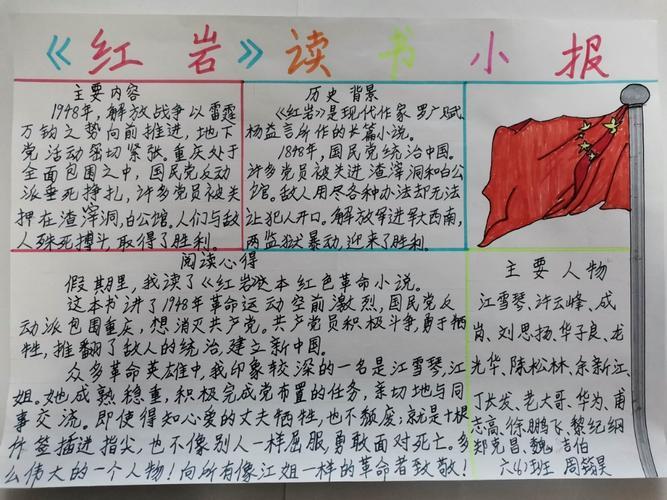 《红岩》读书小报
主要内容
1948年，解放战争以雷霆
万钧之势向前推进，地下
党活动密切紧张。重庆处于
全面包围之中，国民党反动
派垂死挣扎，许多党员被关
押在渣滓洞，白公馆。人们与敌
人殊死搏斗，取得了胜利。
历史背景
《红岩》是现代作家罗广斌，
杨益言所作的长篇小说。
1898年，国民党统治中国。
许多党员被关进渣滓洞和白公
馆。敌人用尽各种办法却无法
让犯人开口。解放军进军大西南，
两监狱暴动，迎来了胜利。
阅读心得
假期里，我读了《红岩》这本红色革命小说。
这本书讲了1948年革命运动空前激烈，国民党反
动派包围重庆，想消灭共产党。共产党员积极斗争，勇于牺
牲，推翻了敌人的统治，建立新中国。
众多革命英雄中，我印象较深的一名是江雪琴，江
姐。她成熟稳重，积极完成党布置的任务，亲切地与同
事交流。即使得知心爱的丈夫牺牲，也不颓废；就是十根
竹签插进指尖，也不像别人一样屈服，勇敢面对死亡。多
么伟大的一个人物！向所有像江姐一样的革命者致敬！
主要人物
江雪琴、许云峰、成
岗、刘思扬、华子良、龙
光华、陈松林、余新江、
丁长发、艺大哥、华为、甫
志高、徐鹏飞、黎纪纲
郑克昌、魏吉伯
六(6)班 周